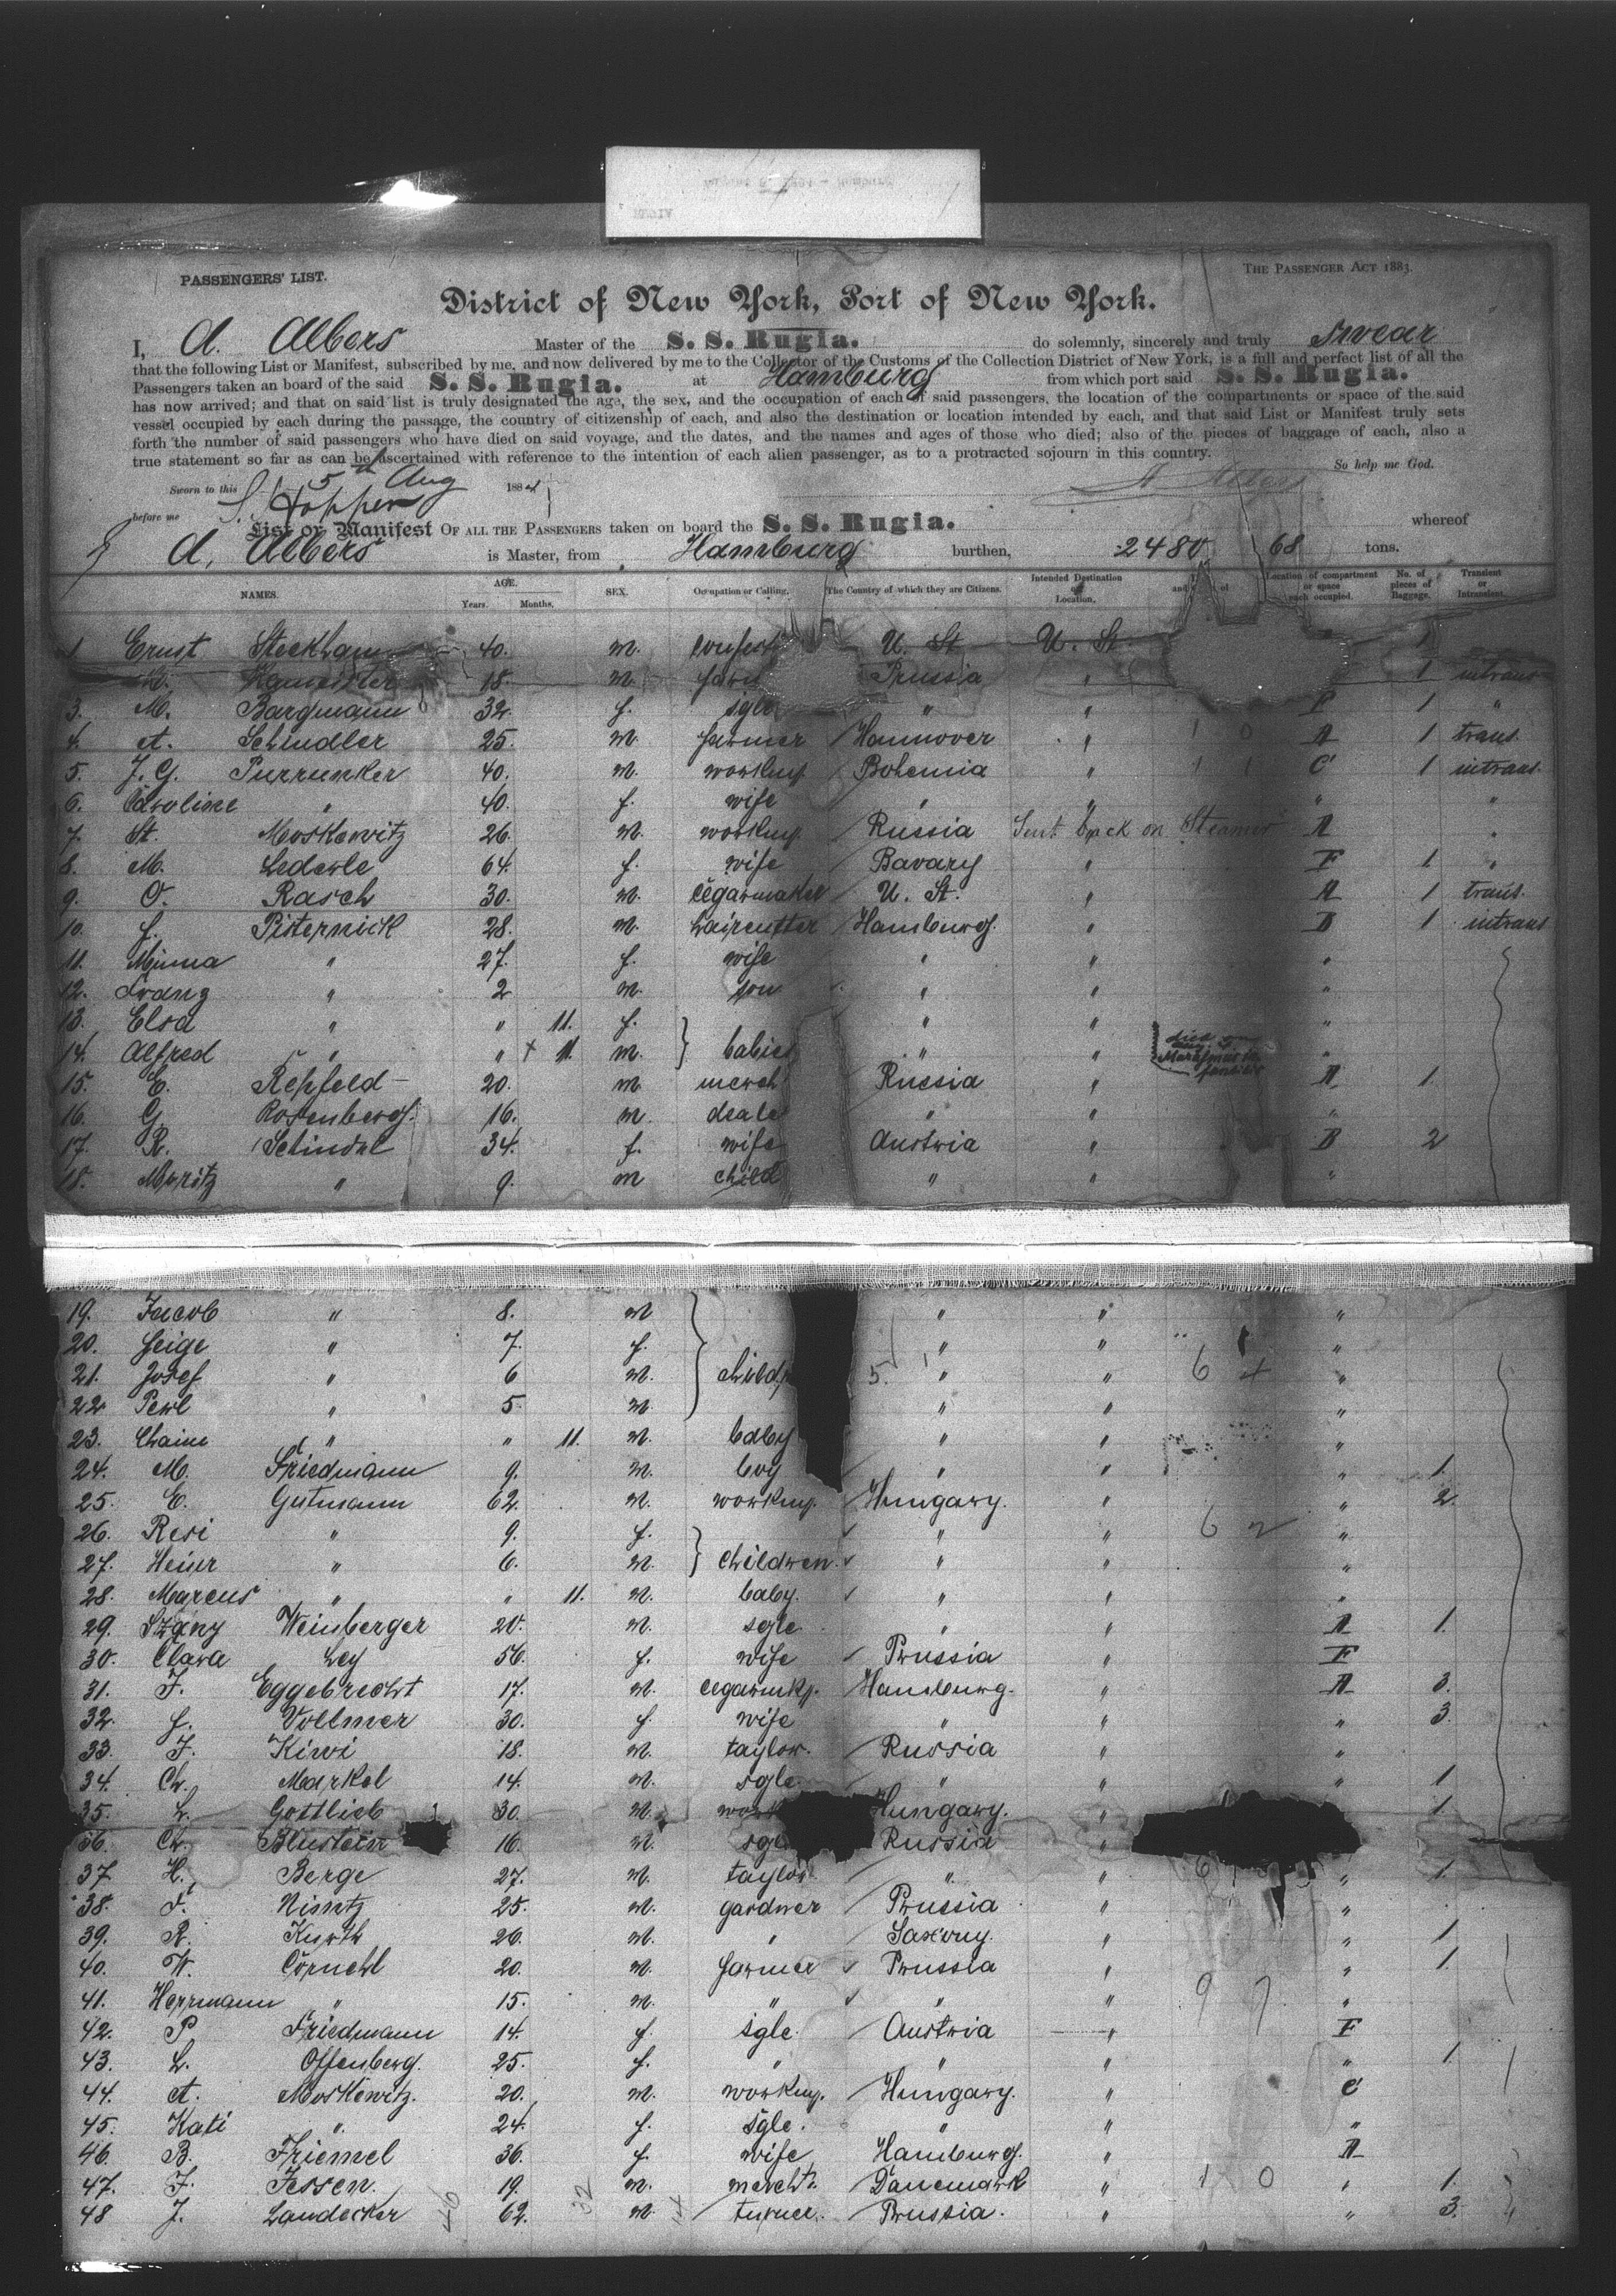 PASSENGERS' LIST.
THE PASSENGER ACT 1883.
District of New York, Port of New York.
I, A. Albers Master of the S. S. Rugia. do solemnly, sincerely and truly swear
that the following List or Manifest, subscribed by me, and now delivered by me to the Collector of the Customs of the Collection District of New York, is a full and perfect list of all the
Passengers taken an board of the said S. S. Rugia. at Hamburg from which port said S. S. Rugia.
has now arrived; and that on said list is truly designated the age, the sex, and the occupation of each of said passengers, the location of the compartments or space of the said
vessel occupied by each during the passage, the country of citizenship of each, and also the destination or location intended by each, and that said List or Manifest truly sets
forth the number of said passengers who have died on said voyage, and the dates, and the names and ages of those who died; also of the pieces of baggage of each, also a
true statement so far as can be ascertained with reference to the intention of each alien passenger, as to a protracted sojourn in this country. So help me God.
Sworn to this 5th Aug 1884
before me S. Hopper
List or Manifest OF ALL THE PASSENGERS taken on board the S. S. Rugia. whereof
A. Albers is Master, from Hamburg burthen, 2480 68 tons.
NAMES. AGE. Years. Months. SEX. Occupation or Calling. The Country of which they are Citizens. Intended Destination or Location. Location of compartment or space each occupied. No. of pieces of Baggage. Transient or Intransient.
1. Ernst Steckham 40. m. U. St. U. St. 1
18. m. Prussia " 1 intrans
3. M. Bargmann 32. f. sgle " " F 1 "
4. A. Schindler 25. m. farmer Hannover " A 1 trans.
5. J. G. Purrunker 40. m. workmg. Bohemia " C 1 intrans.
6. Caroline " 40. f. wife " " " "
7. St. Moskowitz 26. m. workmg. Russia Sent back on Steamer A "
8. M. Lederle 64. f. wife Bavary " F 1 "
9. O. Rasch 30. m. cegarmaker U. St. " A 1 trans.
10. f. Pisternick 28. m. haircutter Hamburg. " B 1 intrans
11. Minna " 27. f. wife " " "
12. Franz " 2 m. son " " "
13. Elsa " " 11. f. " " "
14. Alfred " " + 11. m. babies " " died "
15. E. Repfeld 20. m merch Russia " A 1.
16. G. Rosenberg. 16. m. deale " " "
17. R. Schindel 34. f. wife Austria " B 2
18. Moritz " 9. m child " " "
19. Jacob " 8. m " " "
20. Feige " 7. f. " " "
21. Josef " 6 m. child 5. " " 6 4 "
22 Perl " 5. m " " "
23. Chaim " " 11. m. baby " " "
24. M. Friedmann 9. m. boy " " " 1.
25. E. Gutmann 62. m. workmg. Hungary. " " 2
26. Resi " 9. f. " " 6 2 "
27. " 6. m. children. " " "
28. Marcus " " 11. m. baby. " " "
29. Weinberger 20. m. sgle " " A 1.
30. Clara Ley 56. f. wife Prussia " F
31. F. Eggebrecht 17. m. cegarmkr. Hamburg. " A 3.
32. f. Vollmer 30. f. wife " " " 3.
33. F. Kiwi 18. m. taylor. Russia " "
34. Ch. Markel 14. m. sgle. " " " 1
35. L. Gottlieb 30. m. work Hungary. " 1.
36. Ch. Blustein 16. m. sgle Russia "
37. H. Berge 27. m. taylor " " 6 " 1.
38. F. Nimtz 25. m. gardner Prussia " "
39. R. Kurth 26. m. " Saxony. " " 1.
40. W. Cörnehl 20. m. farmer Prussia " " 1.
41. Herrmann " 15. m. " " " 9 7 "
42. P Friedmann 14. f. sgle. Austria " F
43. L. Offenberg. 25. f. " " " " 1.
44. A. Moskowitz. 20. m. workmg. Hungary. " C
45. Kati " 24. f. sgle. " " "
46. B. Friemel 36. f. wife Hamburg. " A
47. F. Jessen. 19. m. mercht. Danemark " 1 0 " 1.
48 J. Landecker 62. m. turner. Prussia. " " 3.
46 32 14